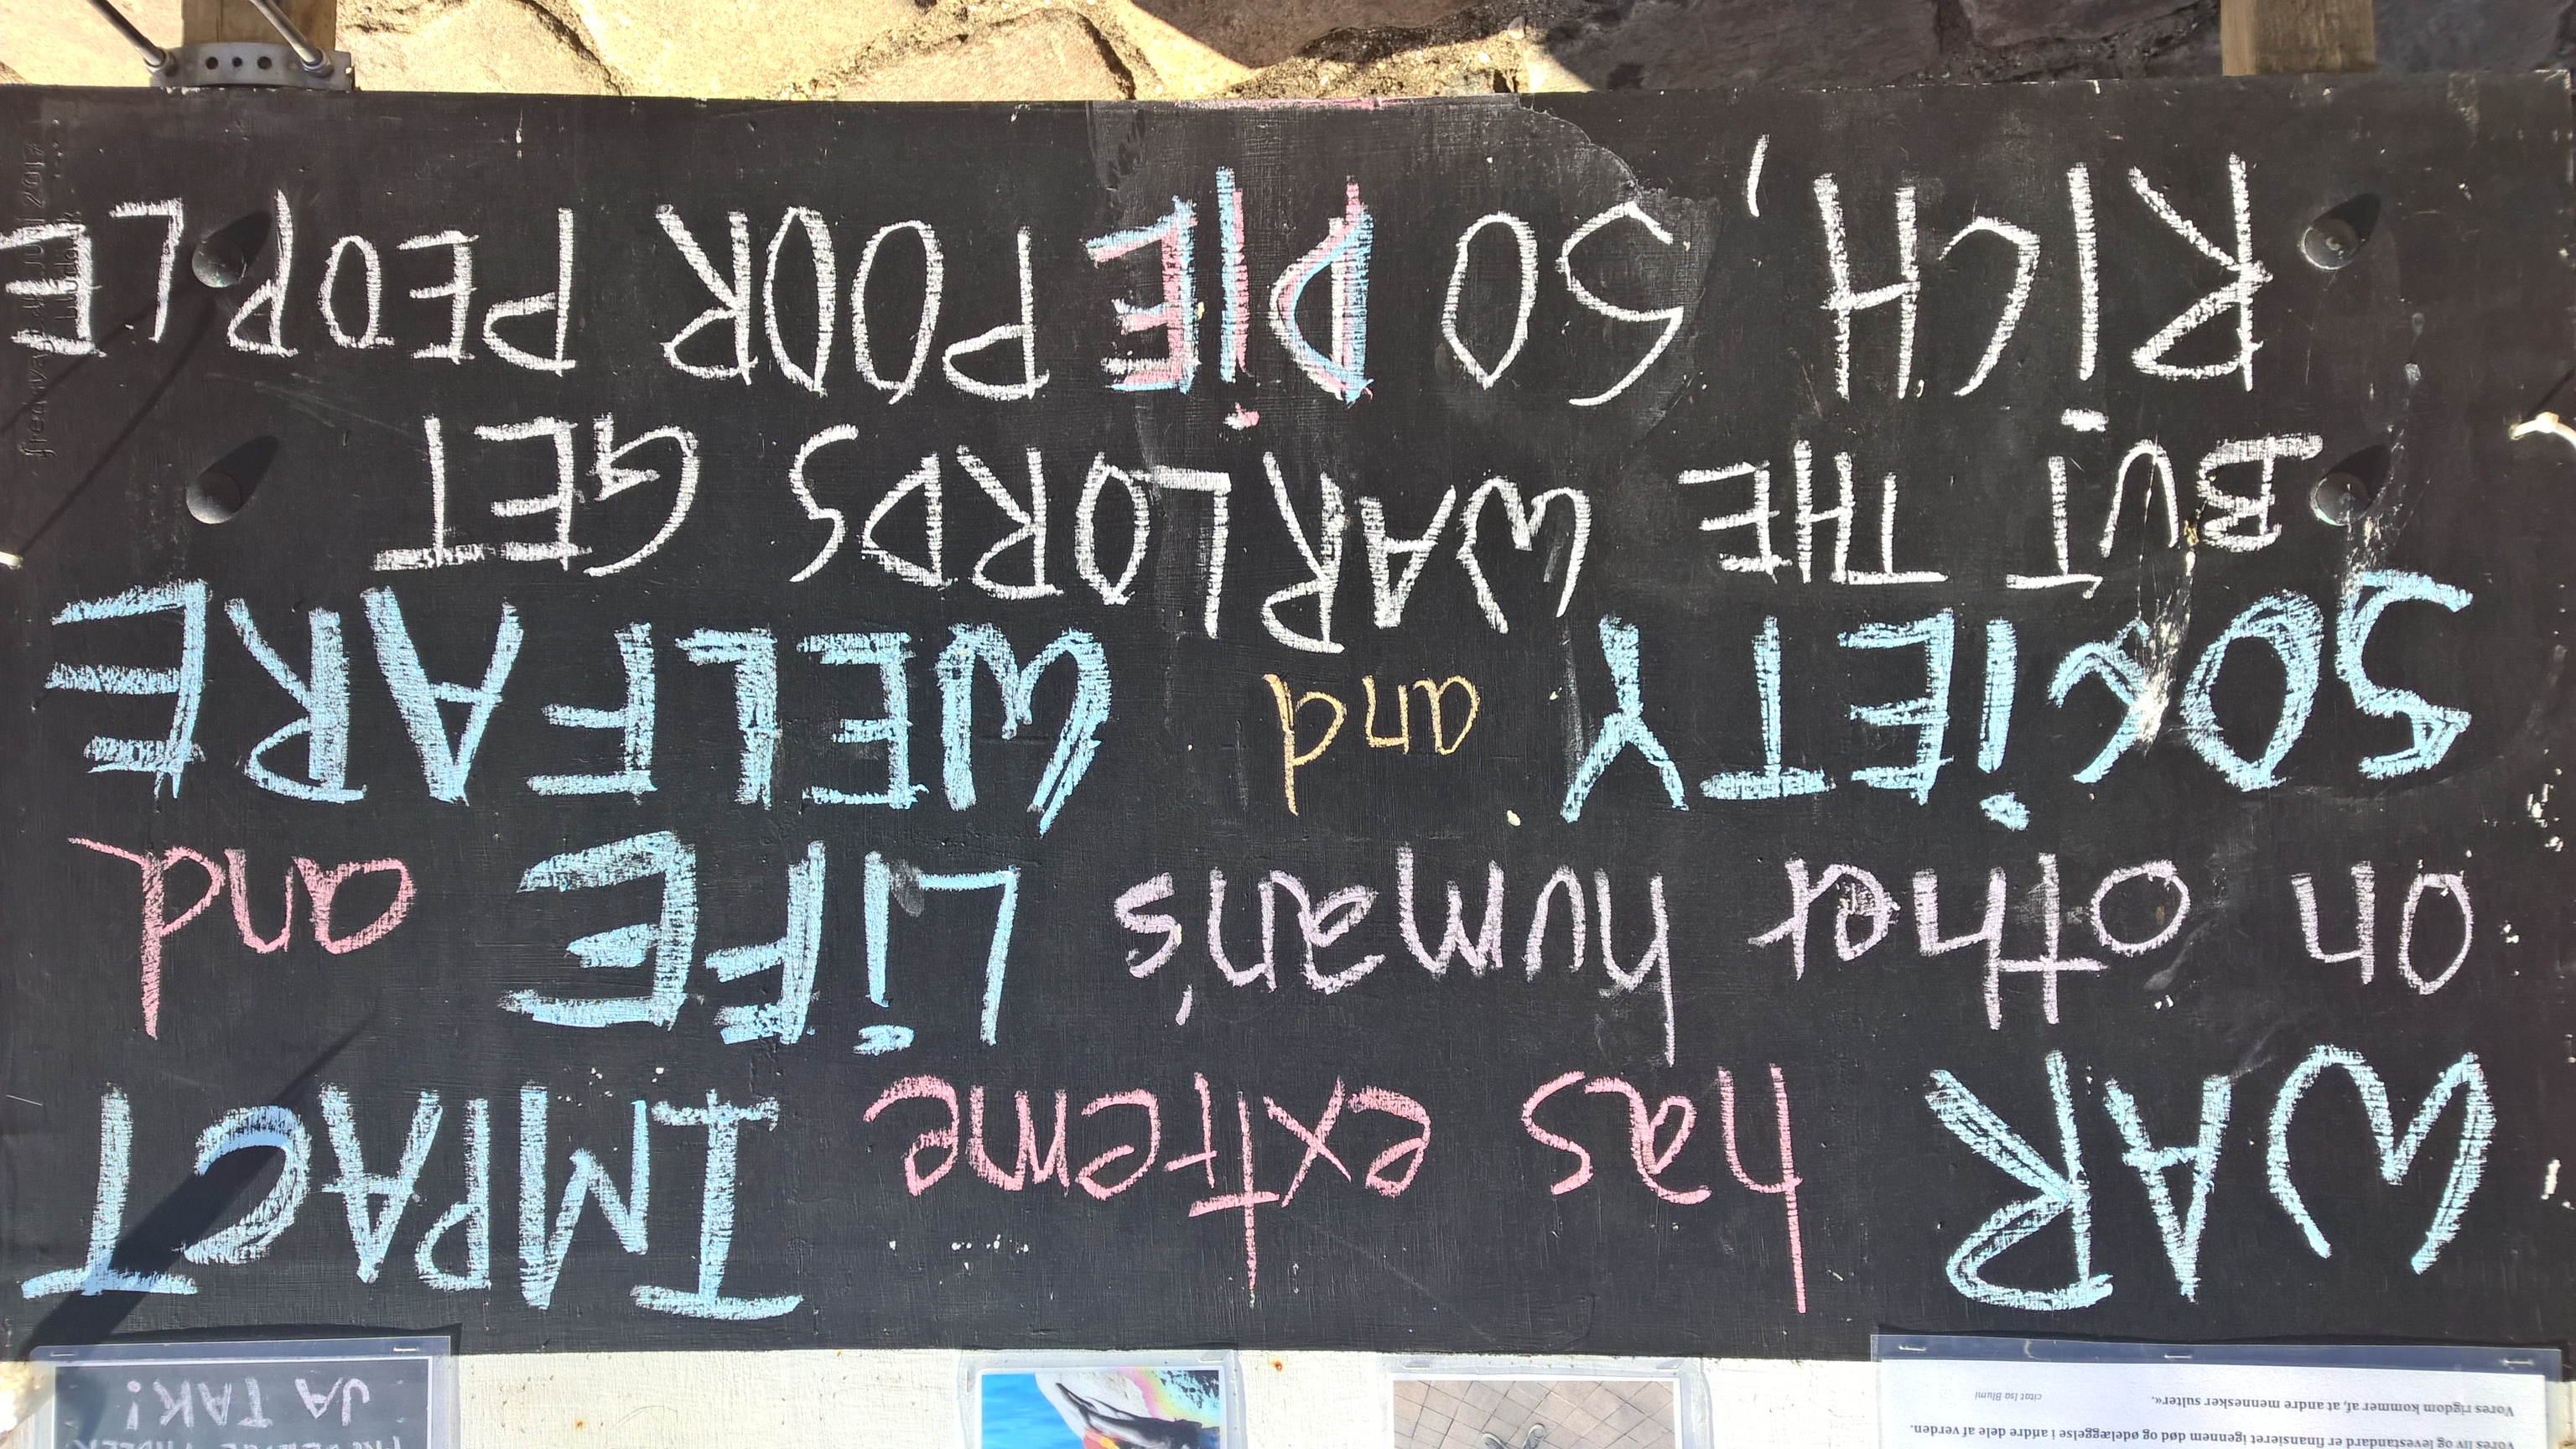 Vores liv og levestandard er finansieret igennem død og ødelæggelse i andre dele af verden.
Vores rigdom kommer af, at andre mennesker sulter«.
citat Isa Blumi
JA TAK!
WAR has exteme IMPACT
on other human's LiFE and
SOCiETY and WELFARE
BUT THE WARLORDS GET
RiCH, SO DIE POOR PEOPLE